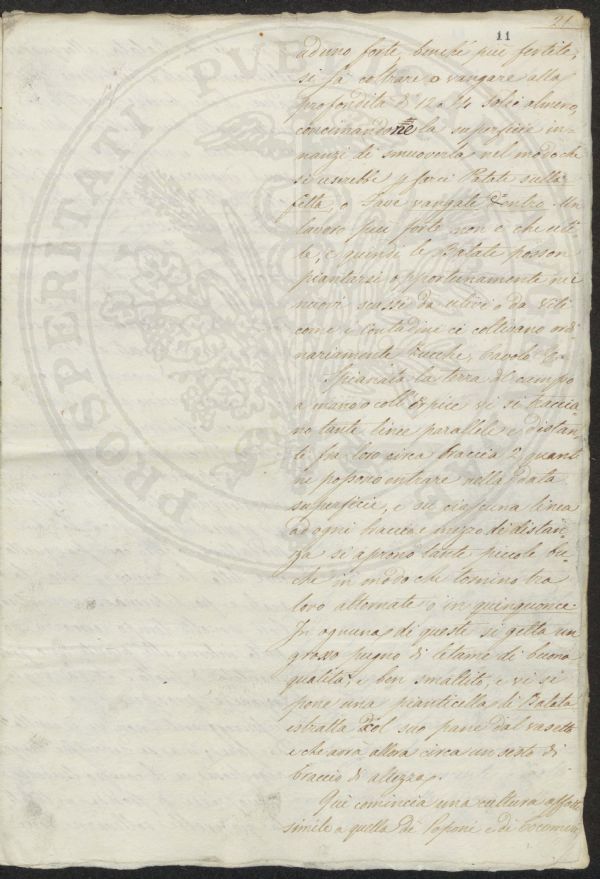 21
11
ad uno forte, benché più fertile,
si fà coltrare o vangare alla
profondità di 12 a 14 soldi almeno,
concimandone la superficie in=
nanzi di smuoverla nel modo che
si userebbe p farci Patate sulla
fetta, o Fave vangate dentro. Un
lavoro più forte non è che uti=
le, e quindi le Batate posson
piantarsi opportunamente nei
nuovi scassi da ulivi o da viti
come i Contadini ci coltivano ordi
nariamente Zucche, Cavoli
Spianata la terra del campo
a mano o coll'Erpice vi si traccia=
no tante linee parallele e distan=
ti fra loro circa braccia 2 quan
te possono entrare nella data
superficie, e su ciascuna linea
ad ogni braccio e mezzo di distan=
za si aprono tante piccole bu=
che in modo che tornino tra
loro alternate o in quinquonce.
In ognuna di queste si getta un
grosso pugno di letame di buona
qualità, e ben smaltito, e vi si
pone una pianticella di Batata
estratta col suo pane dal vasetto
e che avrà allora circa un sesto di
braccio di altezza.
Qui comincia una cultura affatto
simile a quella di Poponi e di Cocomeri
PROSPERITATI PUBLICAE